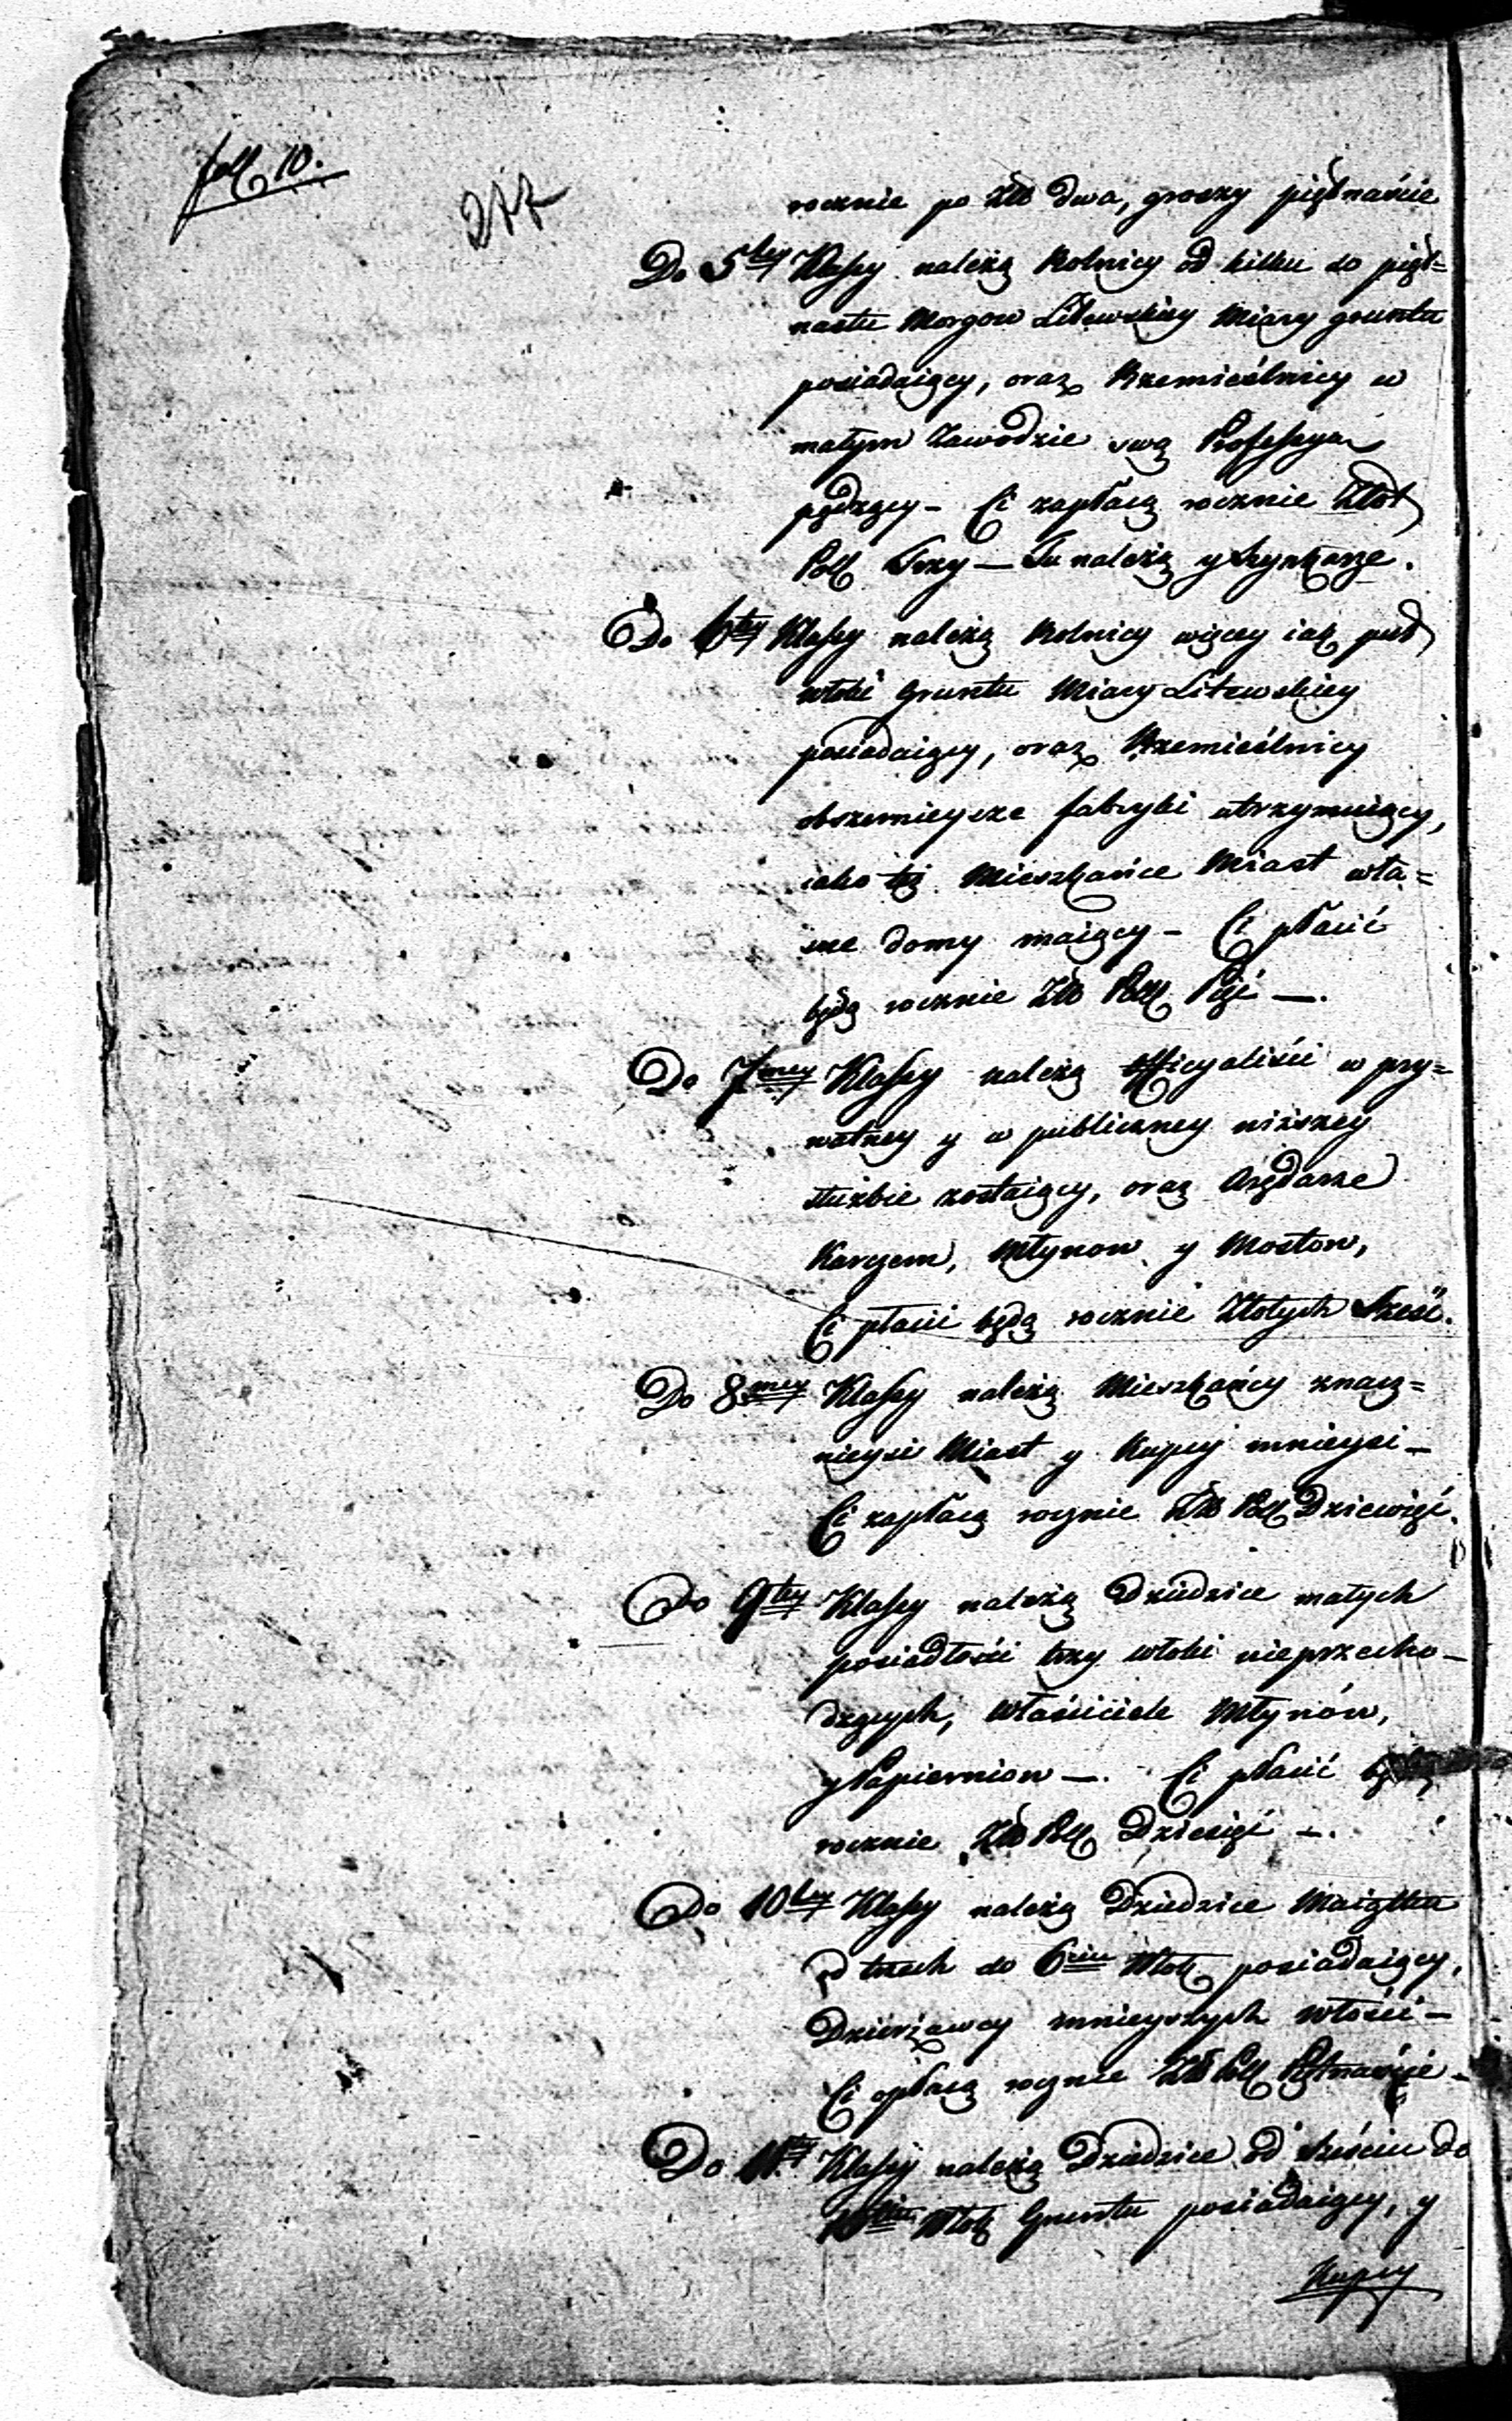 foll 10.
277
rocznie po Złł dwa, groszy piętnaście
Do 5tey Klassy należą Rolnicy od kilku do pięt=
nastu Morgow Litewskiey Miary gruntu
posiadaiący, oraz Rzemieślnicy w
małym Zawodzie swą Professyą
pędzący – Ci zapłacą rocznie Złot
Poll Trzy – Tu należą y Szynkarze.
Do 6tey Klassy należą Rolnicy więcey iak puł
włoki Gruntu Miary Litewskiey
posiadaiący, oraz Rzemieślnicy
obszernieysze fabryki utrzymuiący,
iako też Mieszkańce Miast wła=
sne domy maiący – Ci płacić
będą rocznie Złł Poll Pięć –.
Do 7mey Klassy należą Officyaliści w pry=
watney y w publiczney niższey
służbie zostaiący, oraz Arędarze
Karczem, Młynow y Mostow,
Ci płacić będą rocznie Złotych Sześć.
Do 8mey Klassy należą Mieszkańcy znacz=
nieysi Miast y Kupcy mnieysi –
Ci zapłacą rocznie Złł Poll Dziewięć.
Do 9tey Klassy należą Dziedzice małych
posiadłości trzy włoki nieprzecho–
dzących, Właściciele Młynów,
y Papierniow –. Ci płacić będą
rocznie Złł Poll Dziesięć –.
Do 10tey Klassy należą Dziedzice Maiątku
od trzech do 6ciu Włok posiadaiący,
Dzierżawcy mnieyszych włości –
Ci opłacą rocznie Złł Poll Piętnaście –
Do 11tey Klassy należą Dziedzice od sześciu do
Włok Gruntu posiadaiący, y
Kupcy